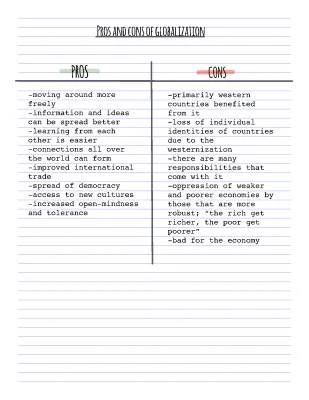 PROS AND CONS OF GLOBALIZATION
PROS
-moving around more
freely
-information and ideas
can be spread better
-learning from each
other is easier
-connections all over
the world can form
-improved international
trade
-spread of democracy
-access to new cultures
-increased open-mindness
and tolerance
CONS
-primarily western
countries benefited
from it
-loss of individual
identities of countries
due to the
westernization
-there are many
responsibilities that
come with it
-oppression of weaker
and poorer economies by
those that are more
robust; "the rich get
richer, the poor get
poorer"
-bad for the economy